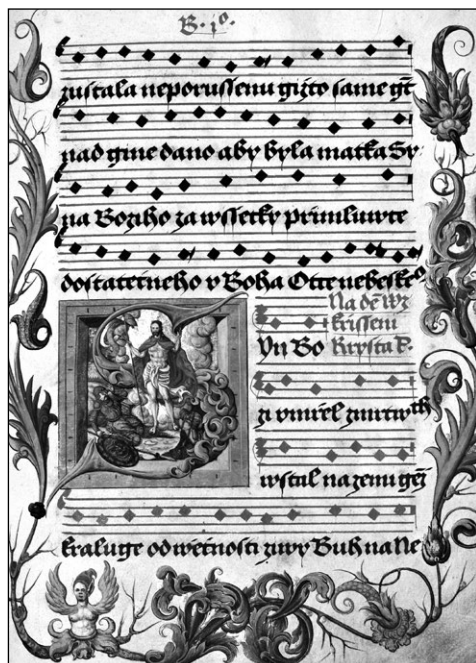 B. 10.
zustala neporussenu gižto same gt̄
nad gine dano aby byla matka Sy
na Bozyho za wssecky primluwte
dostatečneho v Boha Otce nebeske
Na dē Wz
křissení
Krysta P.
yn Bo
zy vmřel zmrtwth
wstal na zemi gež
kraluge od wěčnosti ziwy Buh na Ne